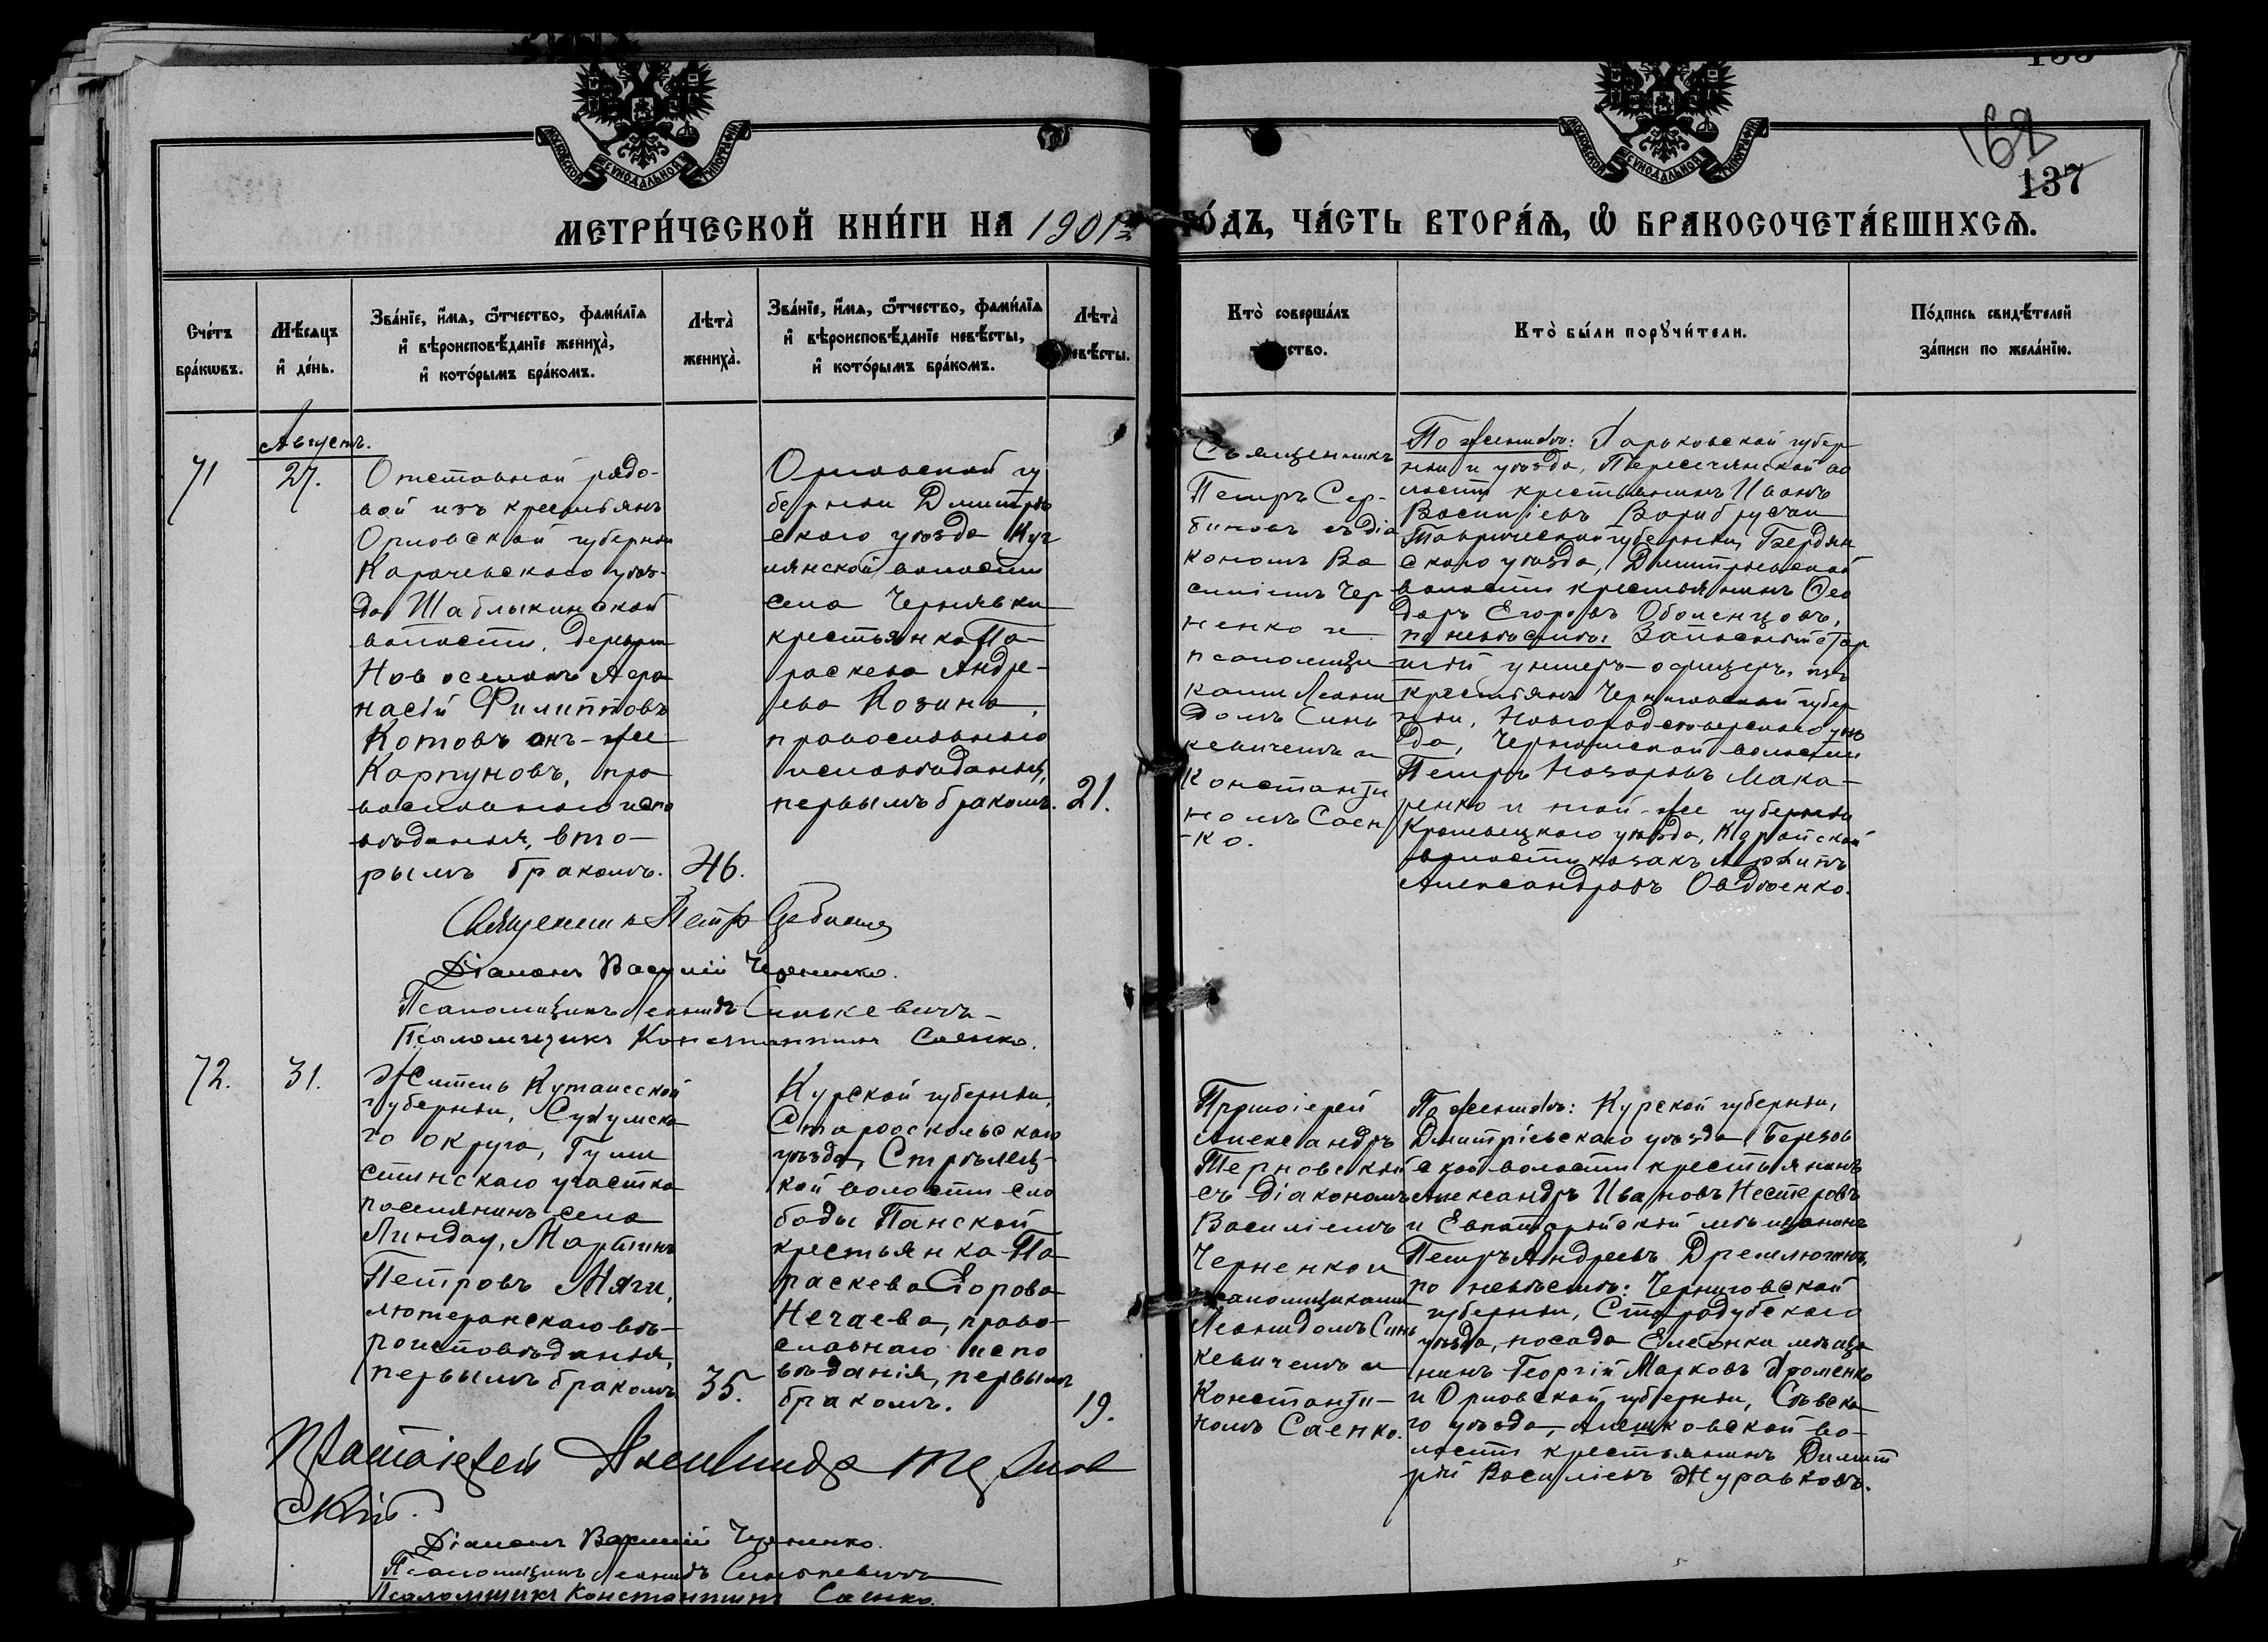 МОСКОВСКОЙ СѴНОДАЛЬНОЙ ТИПОГРАФІИ
МОСКОВСКОЙ СѴНОДАЛЬНОЙ ТИПОГРАФІИ
168
137
МЕТРИ́ЧЕСКОЙ КНИ́ГИ НА 1901й ГО́ДЪ, ЧА́СТЬ ВТОРА́Ѧ, Ѽ БРАКОСОЧЕТА́ВШИХСѦ.
Сче́тъ
бра́кѡвъ.
Мѣ́сяцъ
и҆ де́нь.
Зва́нїе, и҆́мя, ѻ҆́тчество, фами́лїя
и҆ вѣроисповѣ́данїе жениха̀,
и҆ кото́рымъ бра́комъ.
Лѣта̀
жениха̀.
Зва́нїе, и҆́мя, ѻ҆́тчество, фами́лїя
и҆ вѣроисповѣ́данїе невѣ́сты,
и҆ кото́рымъ бра́комъ.
Лѣта̀
невѣ́сты.
Кто̀ соверша́лъ
та́инство.
Кто̀ бы́ли порꙋчи́тели.
По́дпись свидѣ́телей
за́писи по жела́нїю.
Августъ.
71
27.
Отставной рядо-
вой изъ крестьянъ
Орловской губерніи
Карачевскаго уѣз-
да Шаблыкинской
волости, деревни
Новоселокъ Афа
насій Филипповъ
Котовъ онъ-же
Карпуновъ, пра
вославнаго испо
вѣданія, вто-
рымъ бракомъ.
46.
Орловской гу
берніи Дмитров
скаго уѣзда Круг
лянской волости
села Чернявки
крестьянка Па-
раскева Андре-
ева Козина,
православнаго
исповѣданія,
первымъ бракомъ.
21.
Священникъ
Петръ Сер-
биновъ съ діа
кономъ Ва
силіемъ Чер
ненко и
псаломщи
ками Леони
домъ Синь
кевичемъ и
Константи
номъ Саен
-ко.
По женихѣ: Харьковской губер
ніи и уѣзда, Пересѣчянской во
лости крестьянинъ Иванъ
Васильевъ
Таврической губерніи, Бердян
скаго уѣзда, Дмитріевской
волости крестьянинъ Ѳео
доръ Егоровъ Оболенцовъ,
по невѣстѣ: Запасный стар
шій унтеръ-офицеръ, изъ
крестьянъ Черниговской губер
ніи, Новгородсѣверскаго уѣз
да, волости
Петръ Назаровъ Мака-
ренко и той-же губерніи
Кролевецкаго уѣзда, волости козакъ Архипъ
Александровъ Овдѣенко.
Священникъ Петръ Сербиновъ
Діаконъ Василій Черненко.
Псаломщикъ Леонидъ Синькевичъ-
Псаломщикъ Константинъ Саенко.
72.
31.
Житель Кутаисской
губерніи, Сухумска
го округа, Гуми
стинскаго участка
поселянинъ села
Линдау, Мартинъ
Петровъ Мяги,
лютеранскаго вѣ-
роисповѣданія,
первымъ бракомъ
35.
Курской губерніи,
Старооскольскаго
уѣзда, Стрѣлец-
кой волости сло
боды Панской
крестьянка Па
раскева Егорова
Нечаева, право-
славнаго испо
вѣданія, первымъ
бракомъ.
19.
Протоіерей
Александръ
Терновскій
съ діакономъ
Василіемъ
Черненко и
псаломщиками
Леонидомъ Синь
кевичемъ и
Константи-
номъ Саенко.
По женихѣ: Курской губерніи,
Дмитріевскаго уѣзда, Березов
ской волости крестьянинъ
Александръ Ивановъ Нестеровъ
и Евпаторійскій мѣщанинъ
Петръ Андреевъ Дремлюжинъ,
по невѣстѣ: Черниговской
губерніи, Стародубскаго
уѣзда, посада Еліонки мѣща
нинъ Георгій Марковъ Хроменко
и Орловской губерніи, Сѣвска
го уѣзда, Алешковской во-
лости крестьянинъ Димит
рій Васильевъ Журавковъ.
Протоіерей Александръ Тернов
скій.
Діаконъ Василій Черненко.
Псаломщикъ Леонидъ Синькевичъ
Псаломщикъ Константинъ Саенко.